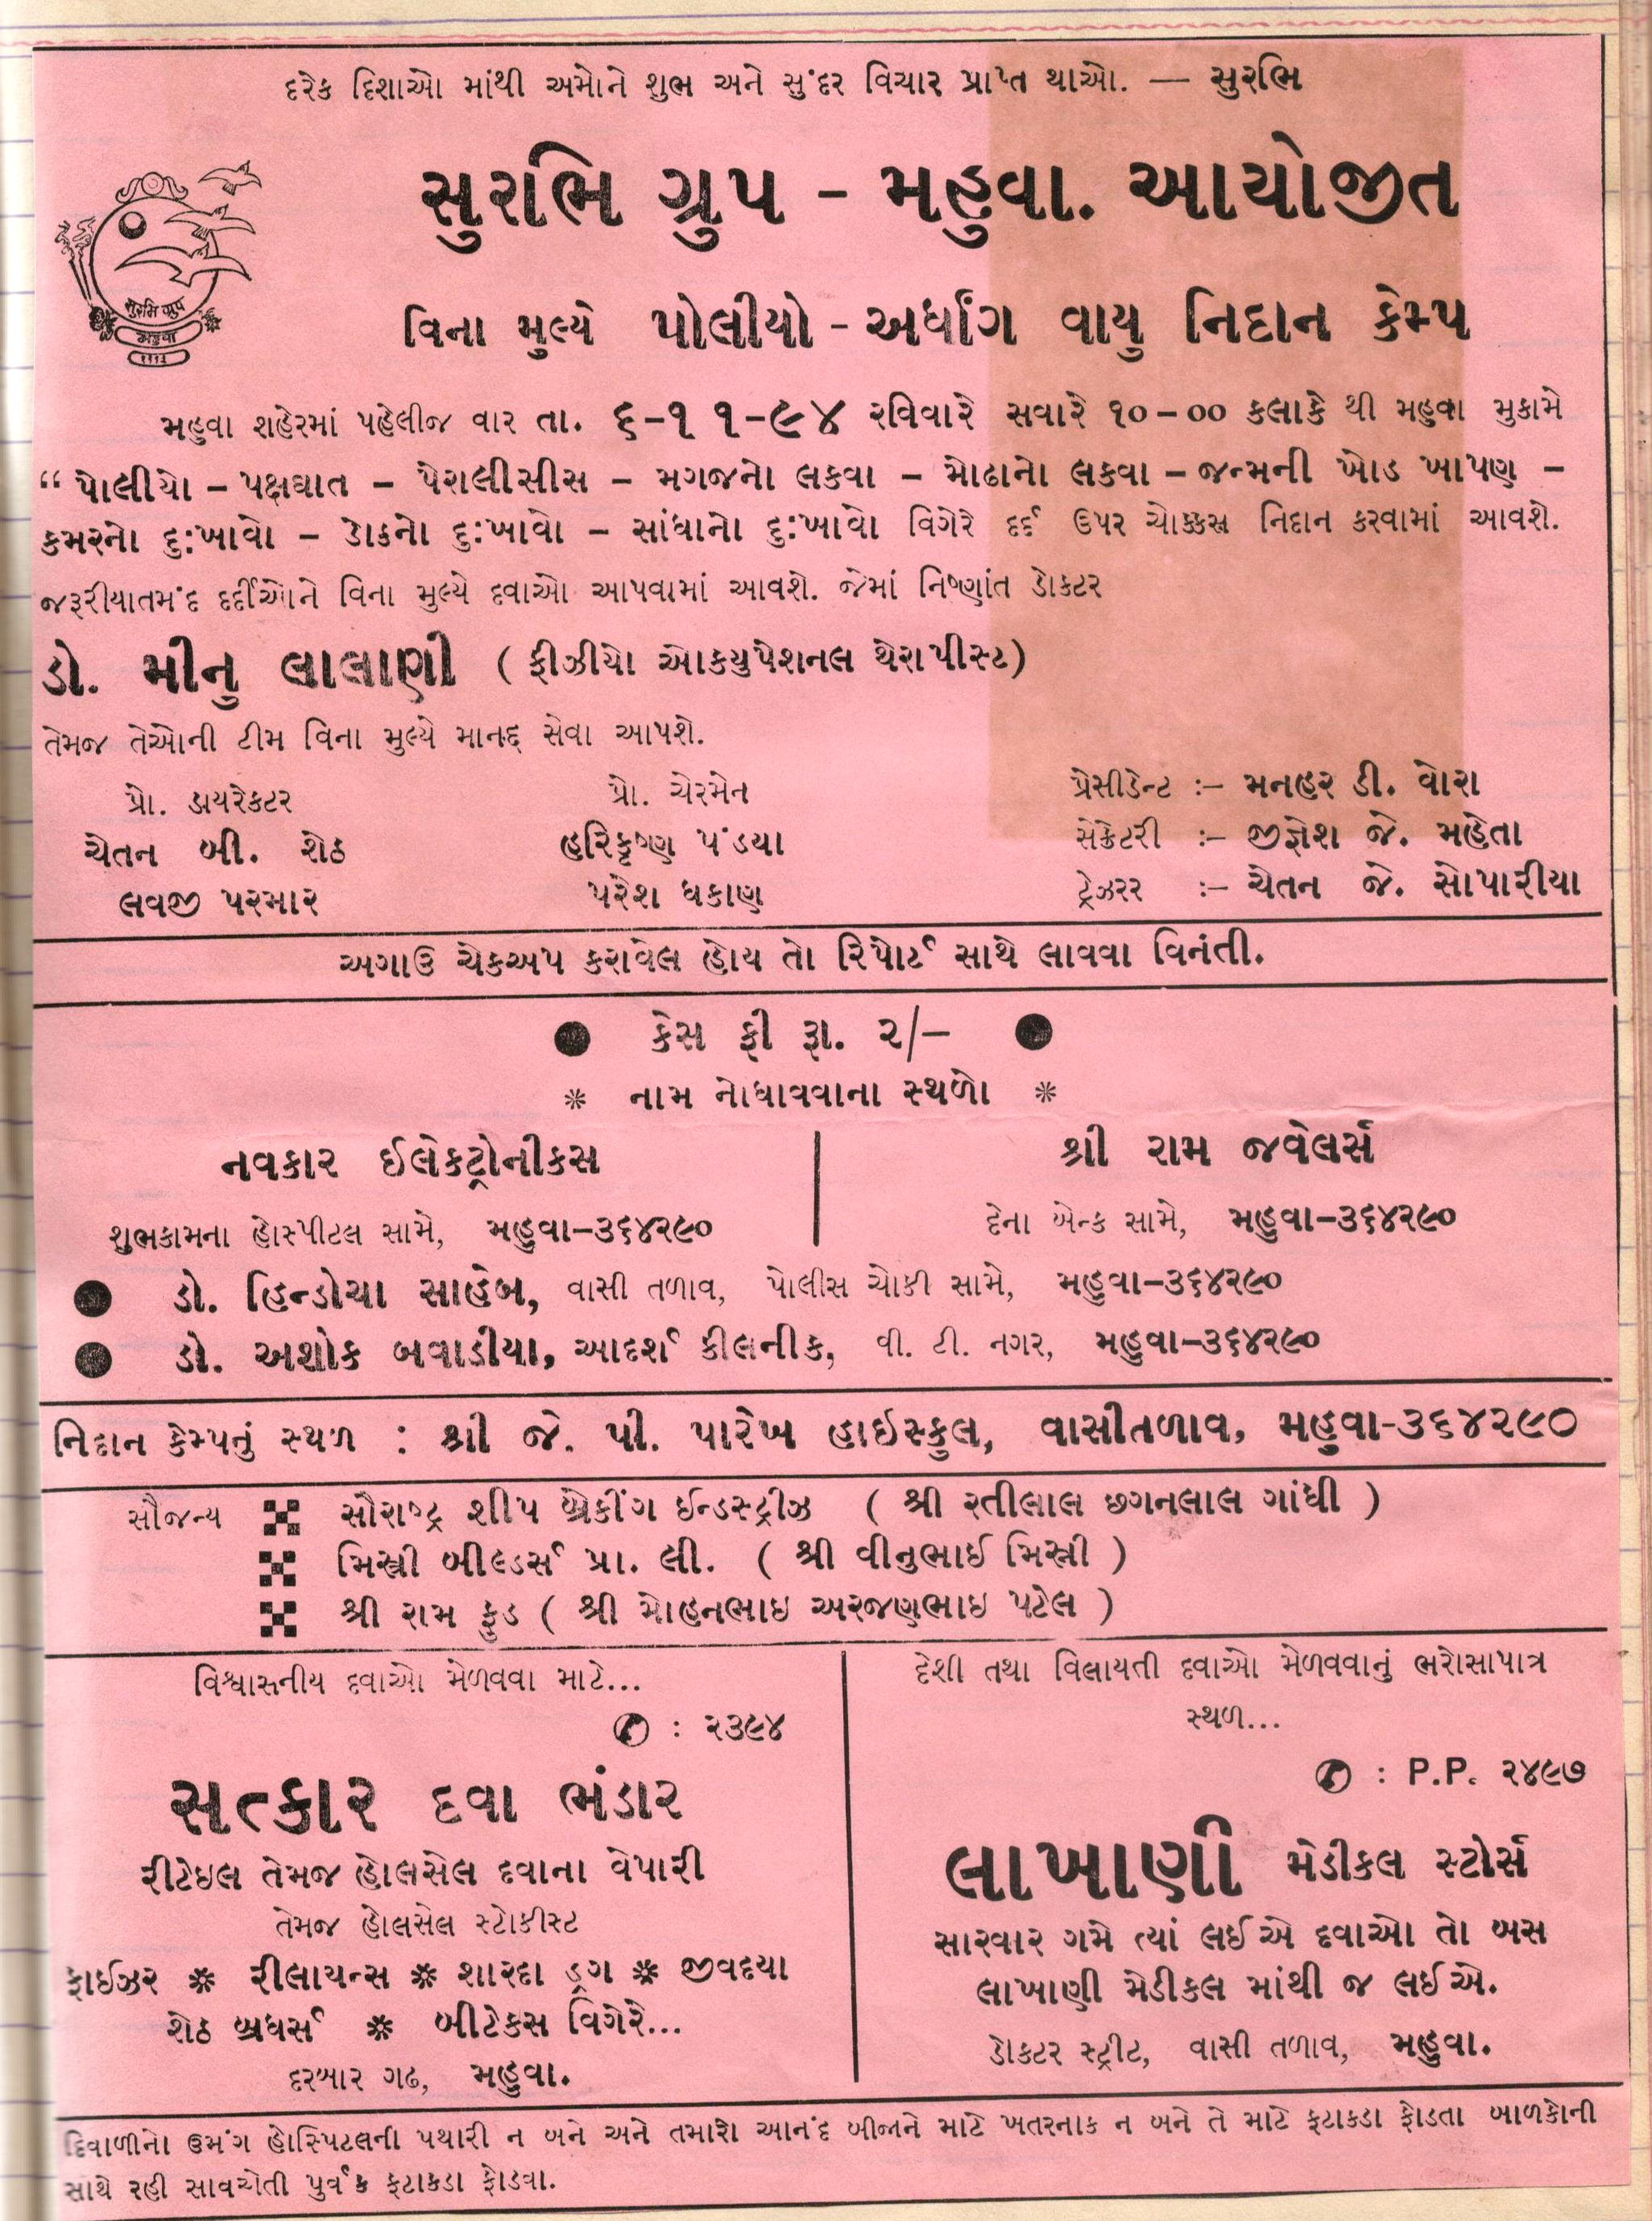 દરેક દિશાઓ માંથી અમોને શુભ અને સુંદર વિચાર પ્રાપ્ત થાઓ. — સુરભિ
સુરભિ ગ્રુપ - મહુવા. આયોજીત
સુરભિ ગ્રુપ
મહુવા
વિના મુલ્યે પોલીયો - અર્ધાંગ વાયુ નિદાન કેમ્પ
મહુવા શહેરમાં પહેલીજ વાર તા. ૬-૧૧-૯૪ રવિવારે સવારે ૧૦-૦૦ કલાકે થી મહુવા મુકામે
“ પોલીયો – પક્ષઘાત – પેરાલીસીસ – મગજનો લકવા – મોઢાનો લકવા – જન્મની ખોડ ખાપણ –
કમરનો દુ:ખાવો – ડોકનો દુ:ખાવો – સાંધાનો દુ:ખાવો વિગેરે દર્દ ઉપર ચોક્કસ નિદાન કરવામાં આવશે.
જરૂરીયાતમંદ દર્દીઓને વિના મુલ્યે દવાઓ આપવામાં આવશે. જેમાં નિષ્ણાંત ડોકટર
ડો. મીનુ લાલાણી ( ફીઝીયો ઓકયુપેશનલ થેરાપીસ્ટ)
તેમજ તેઓની ટીમ વિના મુલ્યે માનદ્ સેવા આપશે.
પ્રો. ડાયરેકટર
ચેતન બી. શેઠ
લવજી પરમાર
પ્રો. ચેરમેન
હરિકૃષ્ણ પંડયા
પરેશ ધકાણ
પ્રેસીડેન્ટ :– મનહર ડી. વોરા
સેક્રેટરી :– જીજ્ઞેશ જે. મહેતા
ટ્રેઝરર :– ચેતન જે. સોપારીયા
અગાઉ ચેકઅપ કરાવેલ હોય તો રિપોર્ટ સાથે લાવવા વિનંતી.
● કેસ ફી રૂા. ૨/– ●
* નામ નોધાવવાના સ્થળો *
નવકાર ઈલેકટ્રોનીકસ
શુભકામના હોસ્પીટલ સામે, મહુવા–૩૬૪૨૯૦
શ્રી રામ જવેલર્સ
દેના બેન્ક સામે, મહુવા–૩૬૪૨૯૦
● ડો. હિન્ડોચા સાહેબ, વાસી તળાવ, પોલીસ ચોકી સામે, મહુવા–૩૬૪૨૯૦
● ડો. અશોક બવાડીયા, આદર્શ કીલનીક, વી. ટી. નગર, મહુવા–૩૬૪૨૯૦
નિદાન કેમ્પનું સ્થળ : શ્રી જે. પી. પારેખ હાઈસ્કુલ, વાસીતળાવ, મહુવા-૩૬૪૨૯૦
સૌજન્ય સૌરાષ્ટ્ર શીપ બ્રેકીંગ ઈન્ડસ્ટ્રીઝ ( શ્રી રતીલાલ છગનલાલ ગાંધી )
મિસ્ત્રી બીલ્ડર્સ પ્રા. લી. ( શ્રી વીનુભાઈ મિસ્ત્રી )
શ્રી રામ ફુડ ( શ્રી મોહનભાઇ અરજણભાઇ પટેલ )
વિશ્વાસનીય દવાઓ મેળવવા માટે...
✆ : ૨૩૯૪
સત્કાર દવા ભંડાર
રીટેઇલ તેમજ હોલસેલ દવાના વેપારી
તેમજ હોલસેલ સ્ટોકીસ્ટ
ફાઈઝર ❋ રીલાયન્સ ❋ શારદા ડ્રગ ❋ જીવદયા
શેઠ બ્રધર્સ ❋ બીટેકસ વિગેરે...
દરબાર ગઢ, મહુવા.
દેશી તથા વિલાયતી દવાઓ મેળવવાનું ભરોસાપાત્ર
સ્થળ...
✆ : P.P. ૨૪૯૭
લાખાણી મેડીકલ સ્ટોર્સ
સારવાર ગમે ત્યાં લઈએ દવાઓ તો બસ
લાખાણી મેડીકલ માંથી જ લઈએ.
ડોકટર સ્ટ્રીટ, વાસી તળાવ, મહુવા.
દિવાળીનો ઉમંગ હોસ્પિટલની પથારી ન બને અને તમારો આનંદ બીજાને માટે ખતરનાક ન બને તે માટે ફટાકડા ફોડતા બાળકોની
સાથે રહી સાવચેતી પુર્વક ફટાકડા ફોડવા.